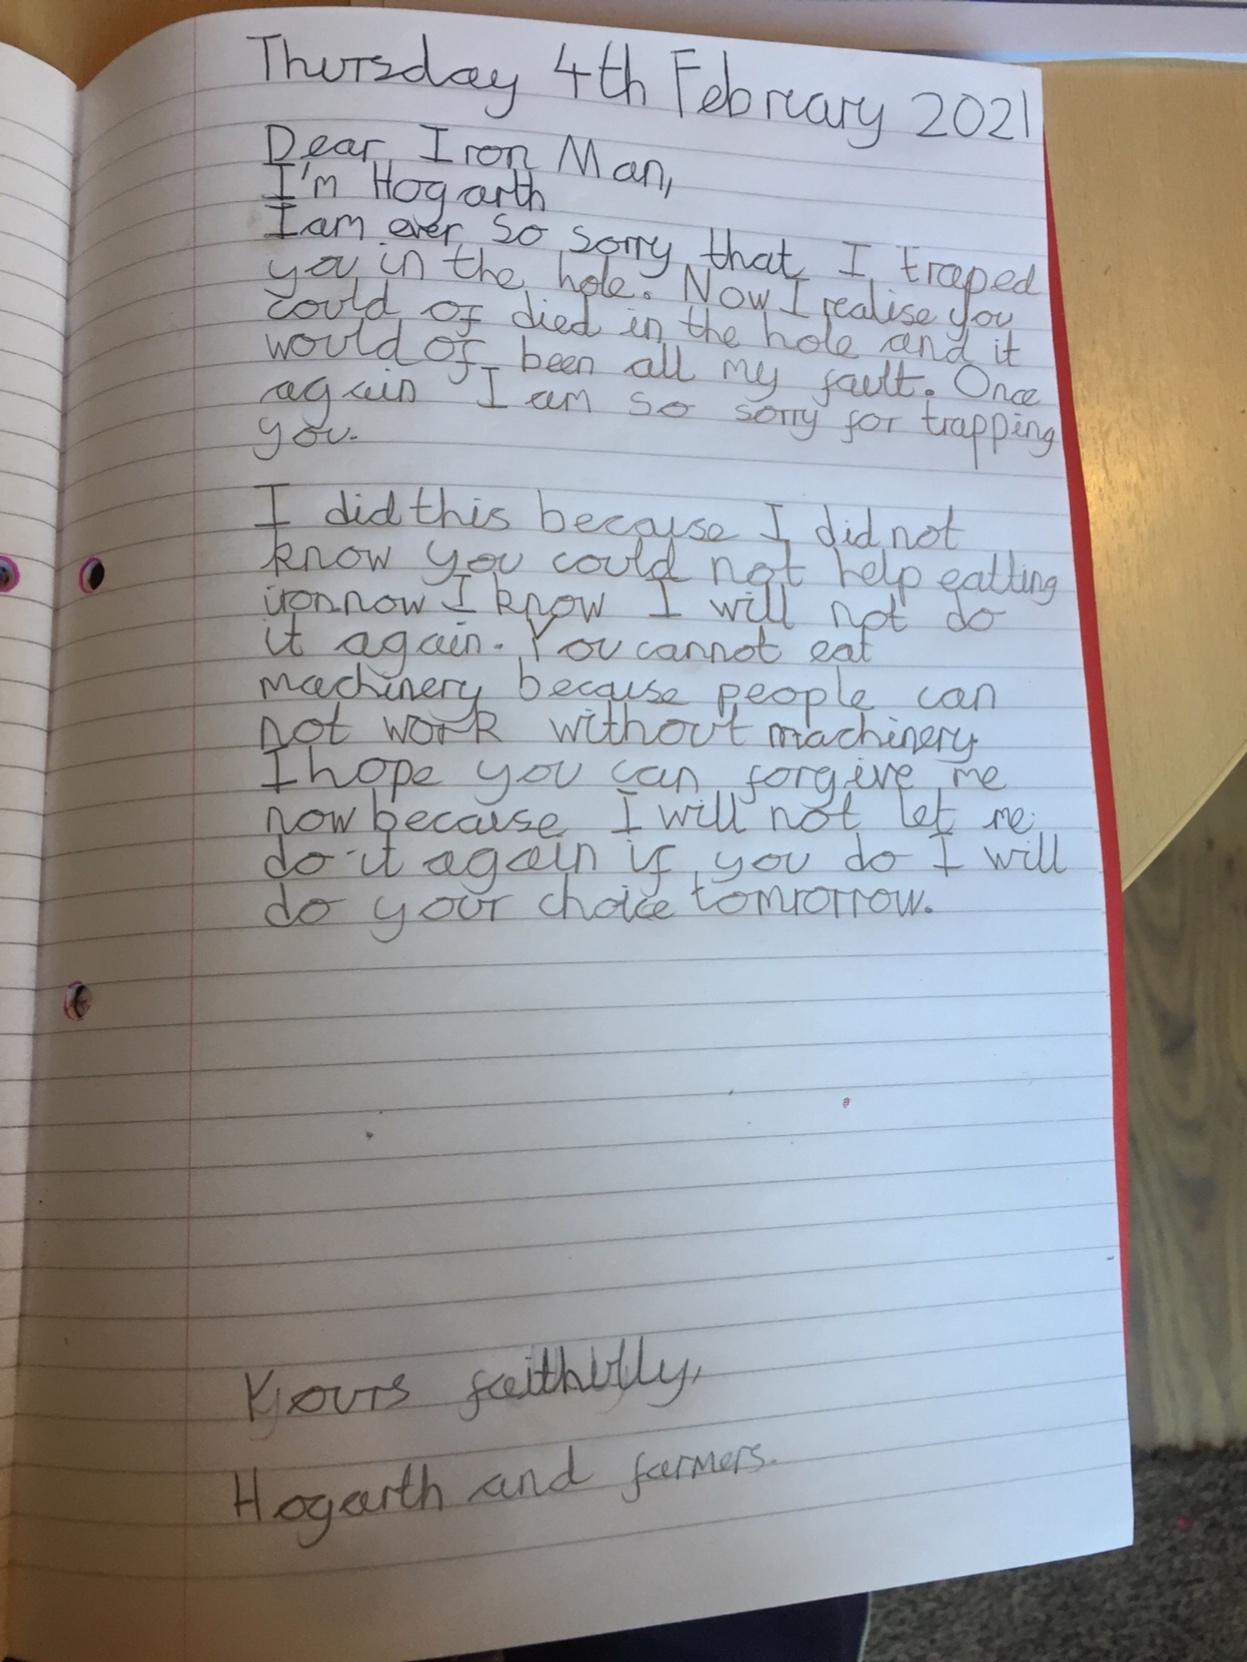 Thursday 4th February 2021
Dear Iron Man,
I'm Hogarth
I am ever so sorry that I traped
you in the hole. Now I realise you
could of died in the hole and it
would of been all my fault. Once
again I am so sorry for trapping
you.
I did this because I did not
know you could not help eatting
iron now I know I will not do
it again. You cannot eat
machinery because people can
not work without machinery
I hope you can forgive me
now because I will not let me
do it again if you do I will
do your choice tomrorrow.
Yours faithfully,
Hogarth and farmers.